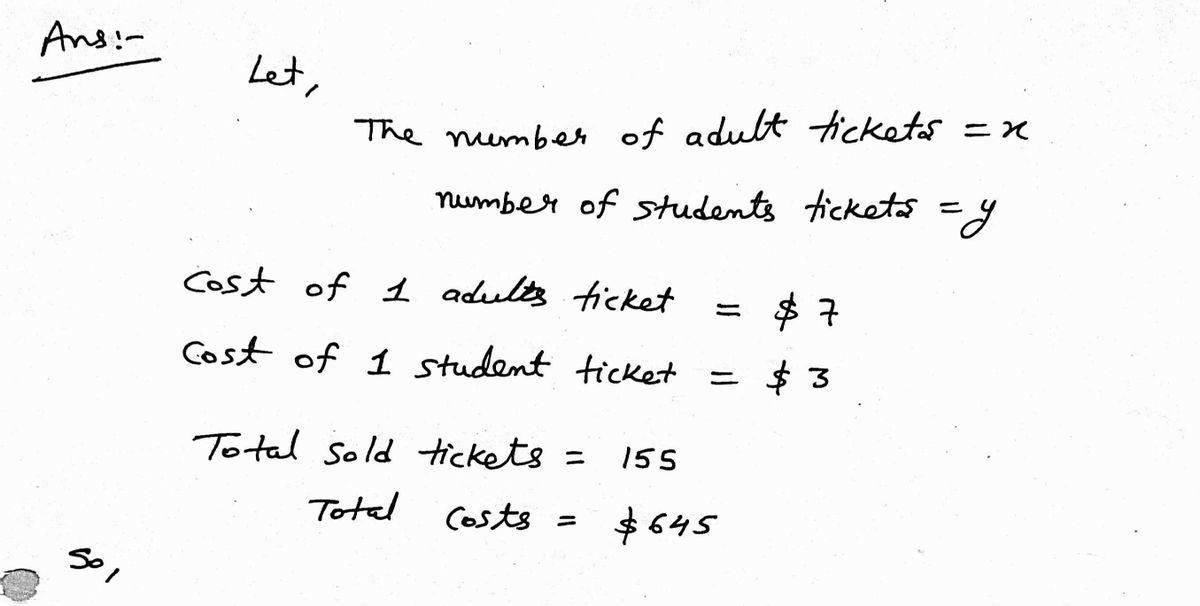 Ans:-
Let,
The number of adult tickets = x
number of students tickets = y
Cost of 1 adults ticket = $7
Cost of 1 student ticket = $3
Total sold tickets = 155
Total costs = $645
So,